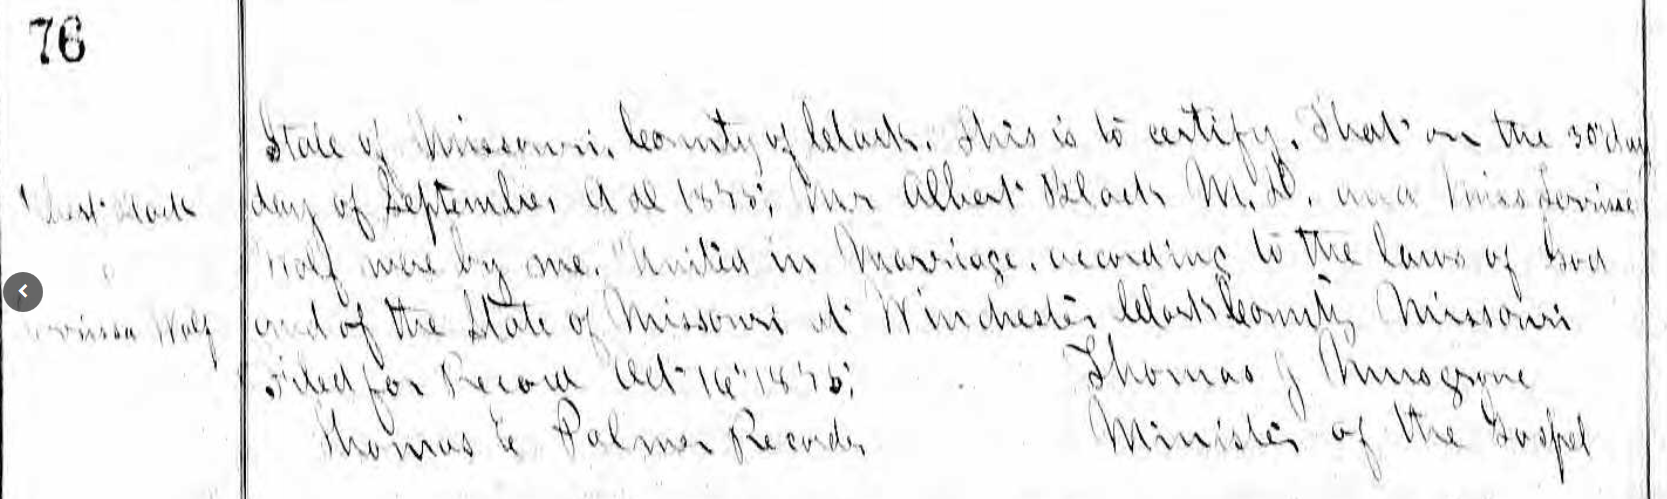 76
State of Missouri. County of Clark. This is to certify. That on the 30" day
day of September A D 1875; Mr Albert Black M. D. and Miss
Wolf were by me. United in Marriage. according to the laws of God
Wolf and of the State of Missouri at Winchester Clark County Missouri
Filed for Record Oct 16" 1875; Thomas J Musgrove
Thomas E Palmer Recorder Minister of the Gospel